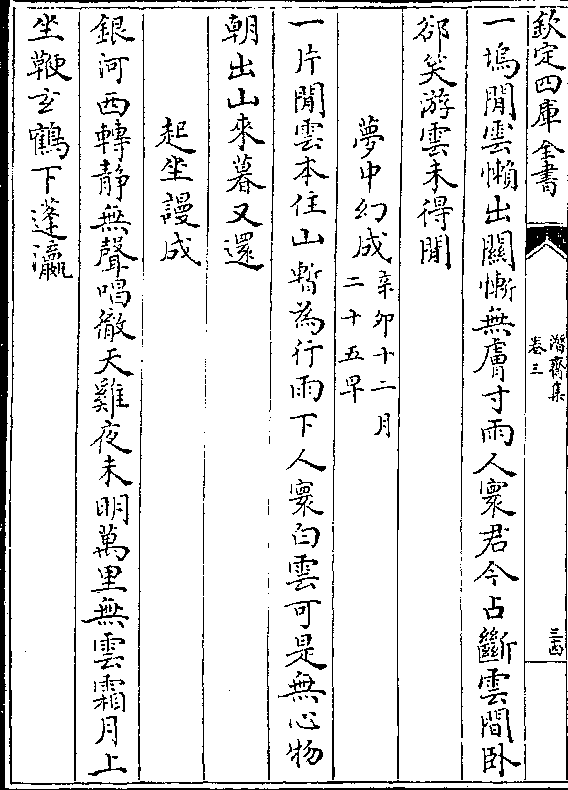 欽定四庫全書
潛齋集
卷三
三西
一塢閒雲懶出關慚無膚寸雨人寰君今占斷雲間卧
郤笑游雲未得閒
夢中幻成辛卯十二月
二十五早
一片閒雲本住山暫為行雨下人寰白雲可是無心物
朝出山來暮又還
起坐謾成
銀河西轉静無聲唱徹天雞夜未明萬里無雲霜月上
坐鞭玄鶴下蓬瀛